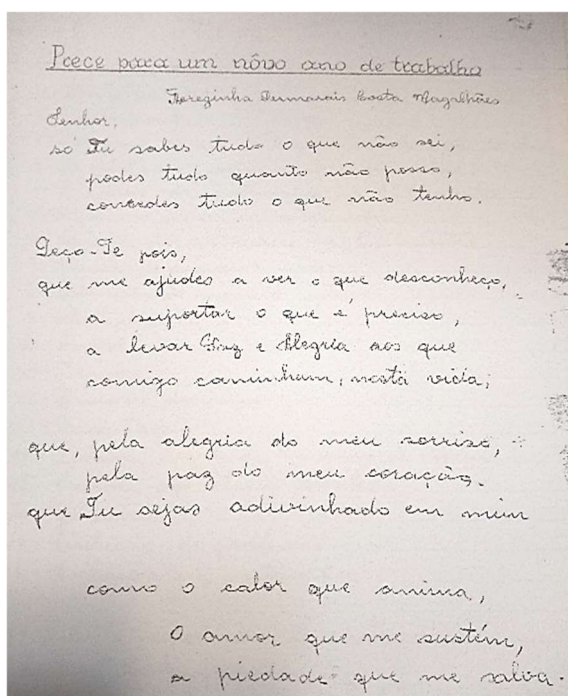 Prece para um nôvo ano de trabalho
Terezinha Costa Magalhães
Senhor,
só Tu sabes tudo o que não sei,
podes tudo quanto não posso,
concedes tudo o que não tenho.
Peço-Te pois,
que me ajudes a ver o que desconheço,
a suportar o que é preciso,
a levar Paz e Alegria aos que
comigo caminham, nesta vida;
que, pela alegria do meu sorriso,
pela paz do meu coração.
que Tu sejas adivinhado em mim
como o calor que anima,
O amor que me sustém,
a piedade que me salva.